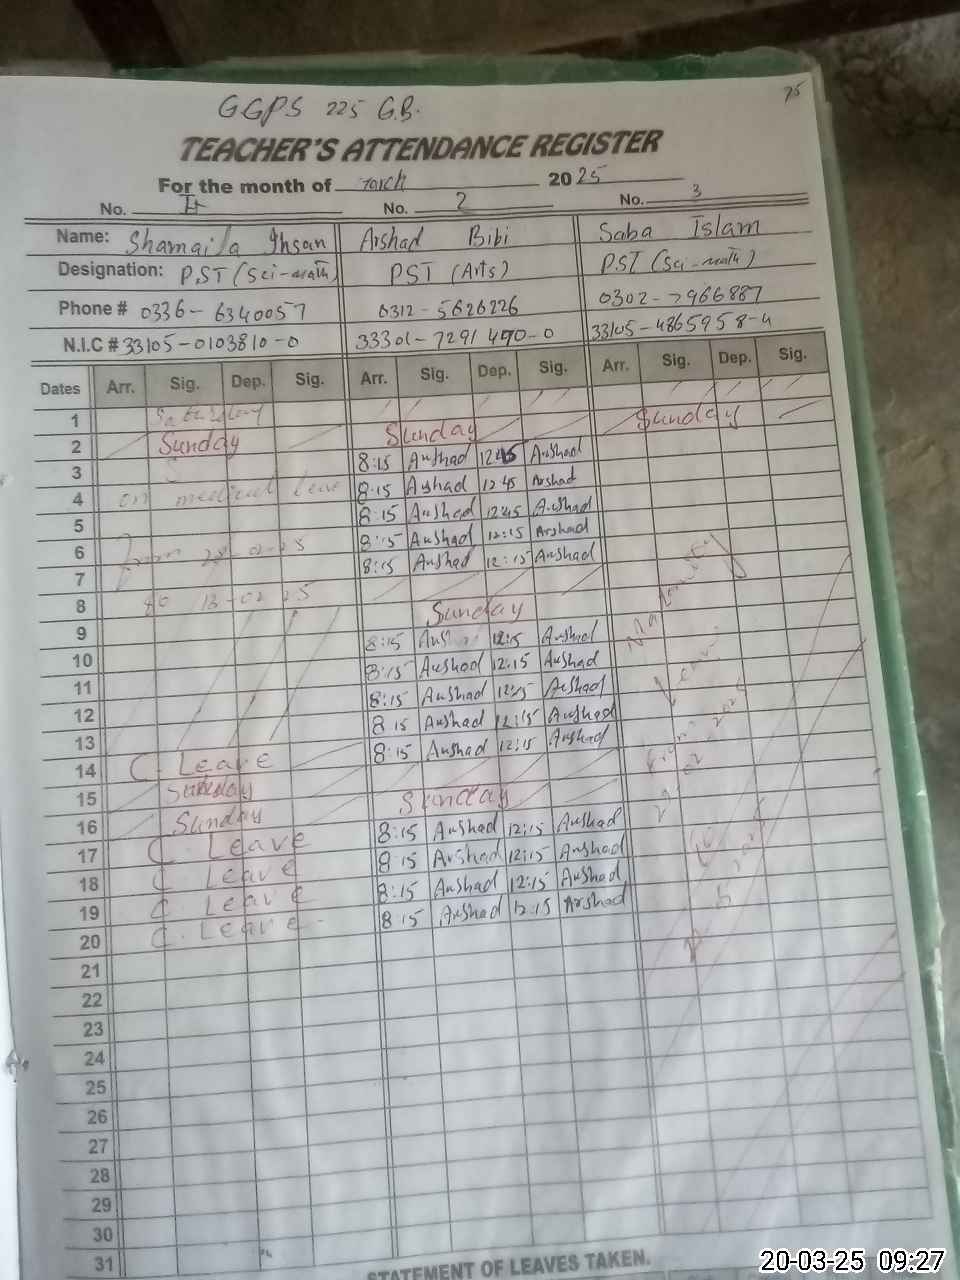 75
GGPS 225 G.B.
TEACHER'S ATTENDANCE REGISTER
For the month of March 2025
No. No. 2 No. 3
Name: Shamaila Ihsan Arshad Bibi Saba Islam
Designation: P.ST (Sci-math) PST (Arts) PST (Sci-math)
Phone # 0336-6340057 0312-5626226 0302-7966887
N.I.C # 33105-0103810-0 33301-7291490-0 33105-4865958-4
Dates Arr. Sig. Dep. Sig. Arr. Sig. Dep. Sig. Arr. Sig. Dep. Sig.
1 Saturday
2 Sunday Sunday Sunday
3 8:15 Arshad 12:45 Arshad
4 on medical leave 8:15 Arshad 12:45 Arshad
5 8:15 Arshad 12:45 Arshad
6 from 28-02-25 8:15 Arshad 12:15 Arshad
7 8:15 Arshad 12:15 Arshad
8 to 13-02-25
9 Sunday
10 8:15 12:15 Arshad
11 8:15 Arshad 12:15 Arshad
12 8:15 Arshad 12:15 Arshad
13 8:15 Arshad 12:15 Arshad
14 C. Leave 8:15 Arshad 12:15 Arshad
15 Saturday
16 Sunday Sunday
17 C. Leave 8:15 Arshad 12:15 Arshad
18 C. Leave 8:15 Arshad 12:15 Arshad
19 C. Leave 8:15 Arshad 12:15 Arshad
20 C. Leave 8:15 Arshad 12:15 Arshad
21
22
23
24
25
26
27
28
29
30
31
Maternity
Leave
from
to
STATEMENT OF LEAVES TAKEN.
20-03-25 09:27